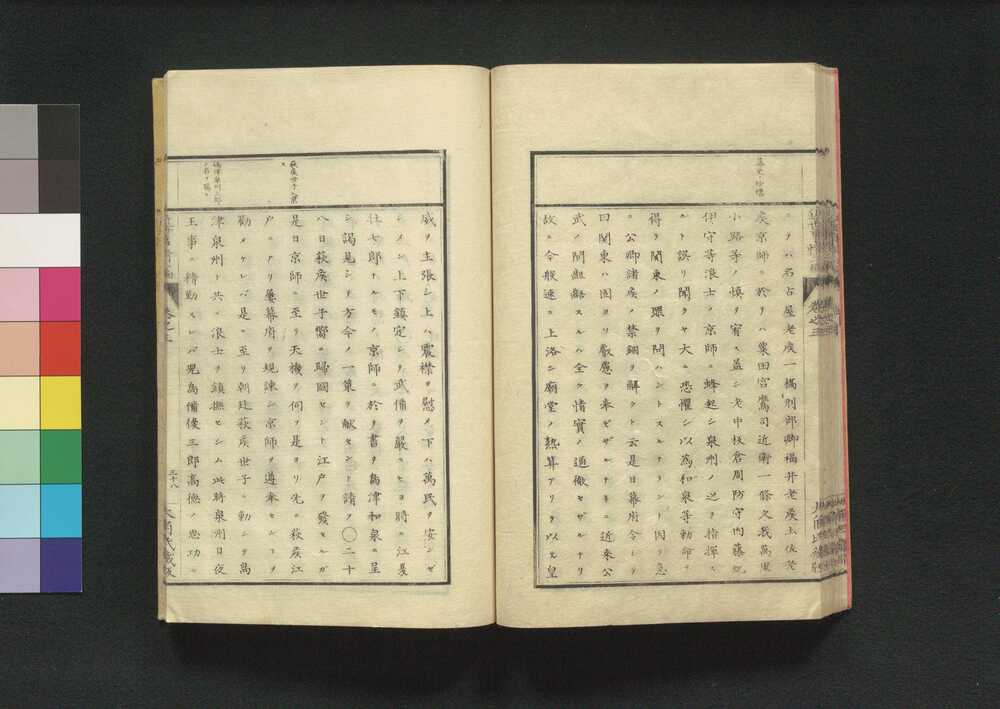 テヲハ名古屋老矦一橋刑部卿福井老矦土佐老
矦京師ニ於テハ粟田宮鷹司近衛一條久我萬里
小路等ノ慎ヲ宥ス蓋シ老中板倉周防守内藤紀
伊守等浪士ノ京師ニ蜂起シ泉州ノ之ヲ指揮ス
ルト誤リ聞クヤ大ニ恐懼シ以為和泉等勅命ヲ
得テ関東ノ罪ヲ問ハントスルナラント因テ急
ニ公卿諸矦ノ禁錮ヲ解クト云是日幕府令シテ
曰関東ハ固ヨリ叡慮ヲ奉セザルナキニ近来公
武ノ間齟齬スルハ全ク情實ノ通徹セザルナリ
故ニ今般速ニ上洛シ廟堂ノ熟算アリテ以テ皇
威ヲ主張シ上ハ震襟ヲ慰メ下ハ萬民ヲ安ンゼ
シメン上下鎮定シテ武備ヲ嚴ニセヨ時ニ江夏
仕七郎ナルモノ京師ニ於テ書ヲ島津和泉ニ呈
シ謁見シテ方今ノ一策ヲ献セント請フ〇二十
八日萩矦世子嚮ニ帰國セント江戸ヲ發セルガ
是日京師ニ至リ天機ヲ伺フ是ヨリ先ニ萩矦江
戸ニアリ屢幕府ヲ規諫シ京師ヲ遵奉センヿヲ
勸メケレバ是ニ至リ朝廷萩矦世子ニ勅シテ島
津泉州ト共ニ浪士ヲ鎮撫セシム此時泉州日夜
王事ニ精勤スレバ児島備後三郎高徳ノ忠功ニ
萩矦世子入京
ス
島津泉州三郎
ノ名ヲ賜フ
巻之三
三十八